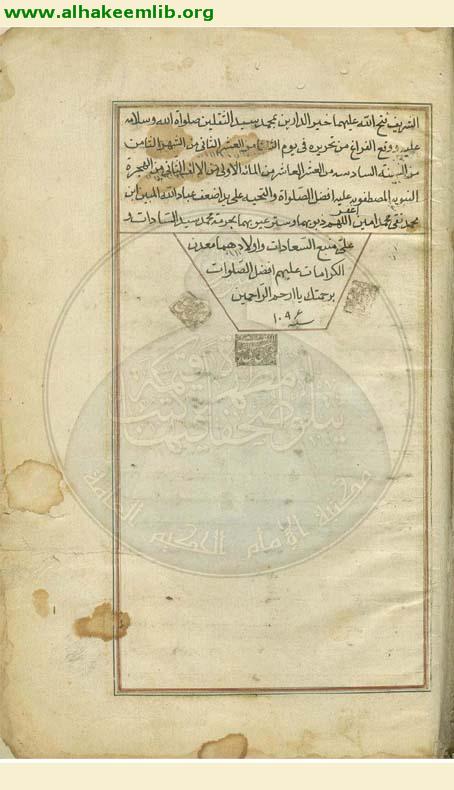 www.alhakeemlib.org
الشريف فتح الله عليهما خير الدارين بمحمد سيد الثقلين صلواة الله وسلامه
عليه ووقع الفراغ من تحريره في يوم الثالث من العشر الثاني من الشهر الثامن
من السنة السادسه من العشر العاشر من المائه الاولى من الالف الثاني من الهجرة
النبويه المصطفويه عليه افضل الصلواة والتحيه على يد اضعف عباد الله المبين ابن
محمد تقي محمد امين اللهم اغفر ذنوبهما واستر عيوبهما بحرمة محمد سيد السادات و
علي منبع السعادات واولادهما معدن
الكرامات عليهم افضل الصلوات
برحمتك يا ارحم الراحمين
سنه ١٠٩٦
مكتبة الإمام الحكيم العامة